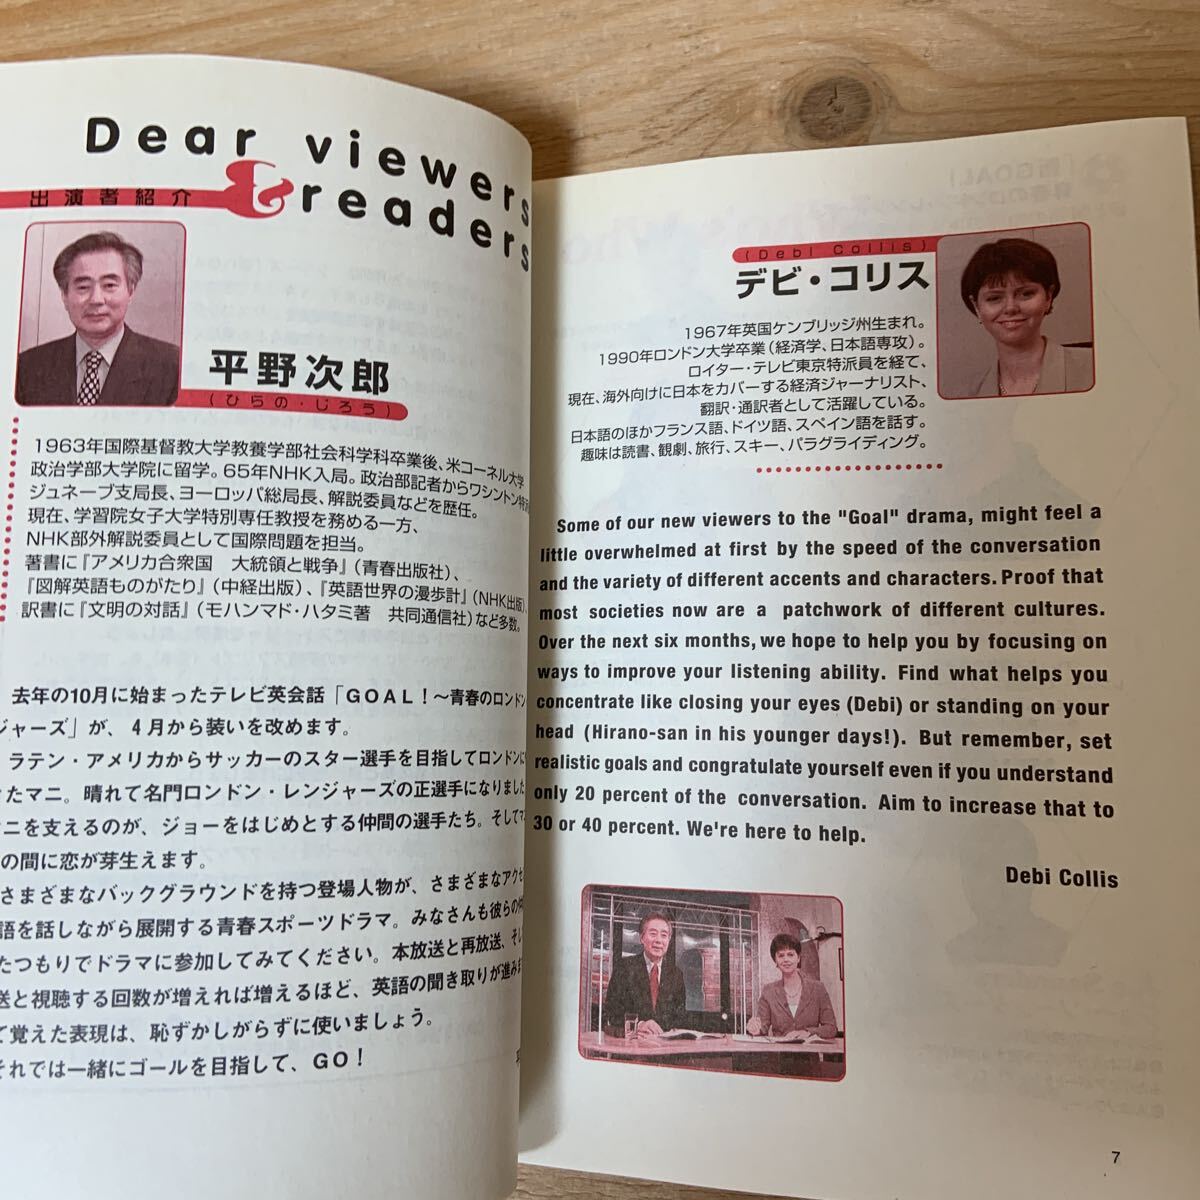 Dear viewers
& readers
出演者紹介
平野次郎
(ひらの・じろう)
1963年国際基督教大学教養学部社会科学科卒業後、米コーネル大学
政治学部大学院に留学。65年NHK入局。政治部記者からワシントン特派
ジュネーブ支局長、ヨーロッパ総局長、解説委員などを歴任。
現在、学習院女子大学特別専任教授を務める一方、
NHK部外解説委員として国際問題を担当。
著書に『アメリカ合衆国 大統領と戦争』(青春出版社)、
『図解英語ものがたり』(中経出版)、『英語世界の漫歩計』(NHK出版)、
訳書に『文明の対話』(モハンマド・ハタミ著 共同通信社)など多数。
去年の10月に始まったテレビ英会話「GOAL!〜青春のロンドン
ジャーズ」が、4月から装いを改めます。
ラテン・アメリカからサッカーのスター選手を目指してロンドンに
たマニ。晴れて名門ロンドン・レンジャーズの正選手になりました
ニを支えるのが、ジョーをはじめとする仲間の選手たち。そしてマ
の間に恋が芽生えます。
さまざまなバックグラウンドを持つ登場人物が、さまざまなアクセ
語を話しながら展開する青春スポーツドラマ。みなさんも彼らの仲
たつもりでドラマに参加してみてください。本放送と再放送、そし
送と視聴する回数が増えれば増えるほど、英語の聞き取りが進みま
て覚えた表現は、恥ずかしがらずに使いましょう。
それでは一緒にゴールを目指して、GO!
(Debi Collis)
デビ・コリス
1967年英国ケンブリッジ州生まれ。
1990年ロンドン大学卒業(経済学、日本語専攻)。
ロイター・テレビ東京特派員を経て、
現在、海外向けに日本をカバーする経済ジャーナリスト、
翻訳・通訳者として活躍している。
日本語のほかフランス語、ドイツ語、スペイン語を話す。
趣味は読書、観劇、旅行、スキー、パラグライディング。
Some of our new viewers to the "Goal" drama, might feel a
little overwhelmed at first by the speed of the conversation
and the variety of different accents and characters. Proof that
most societies now are a patchwork of different cultures.
Over the next six months, we hope to help you by focusing on
ways to improve your listening ability. Find what helps you
concentrate like closing your eyes (Debi) or standing on your
head (Hirano-san in his younger days!). But remember, set
realistic goals and congratulate yourself even if you understand
only 20 percent of the conversation. Aim to increase that to
30 or 40 percent. We're here to help.
Debi Collis
7